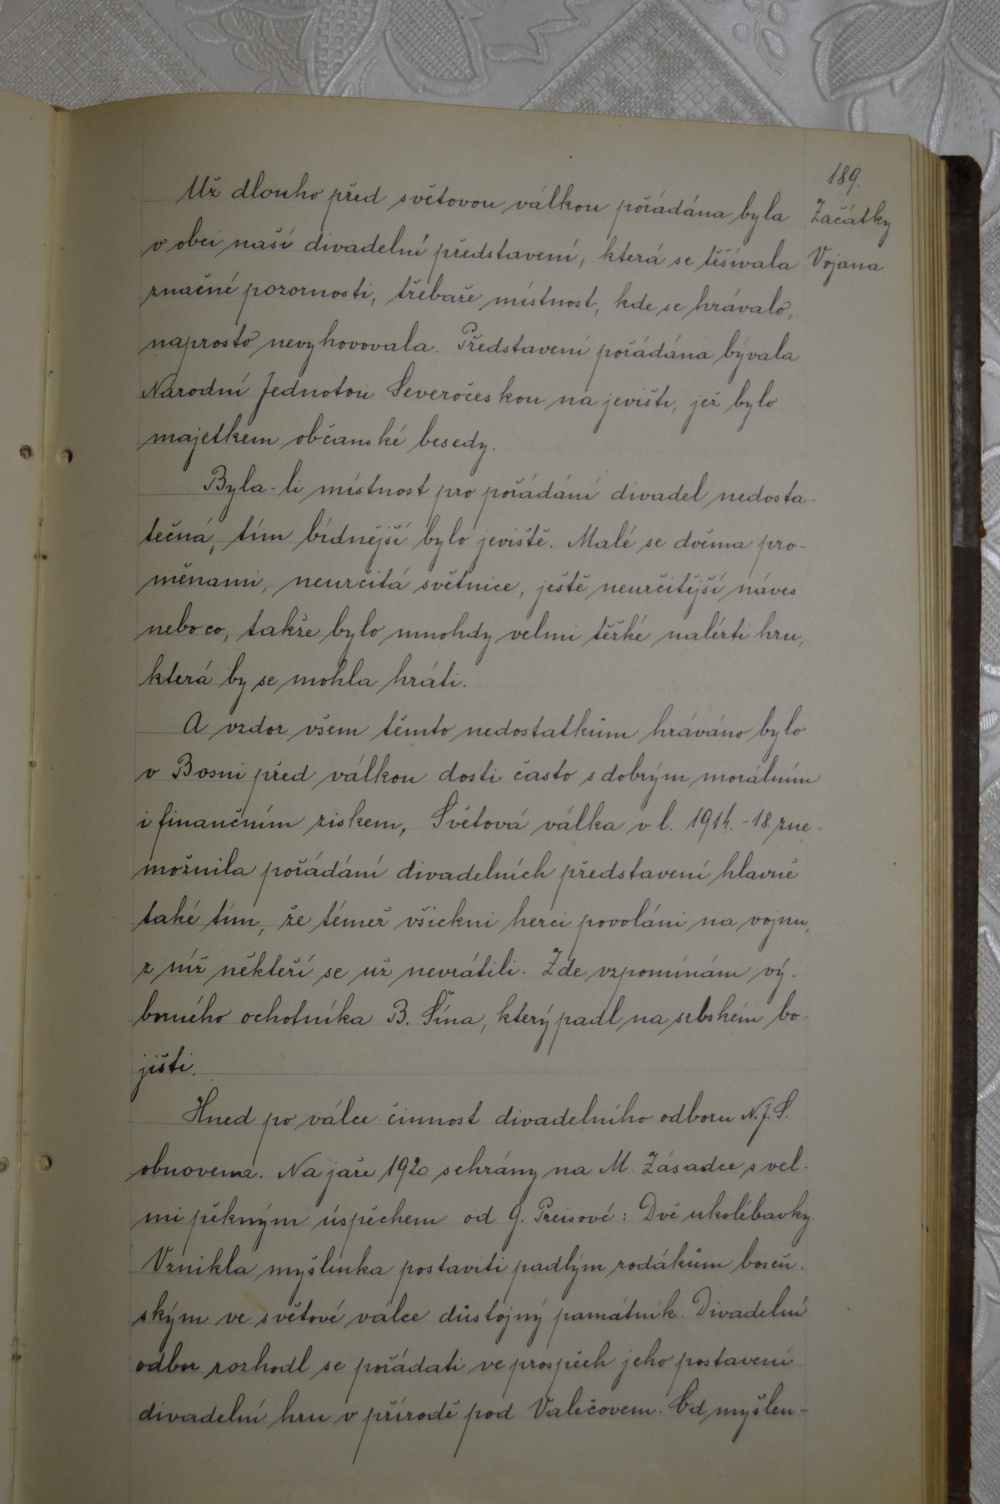 189.
Už dlouho před světovou válkou pořádána byla
Začátky
v obci naší divadelní představení, která se těšívala
Vojana
značné pozornosti, třebaře místnost, kde se hrávalo,
naprosto nevyhovovala. Představení pořádána bývala
Národní Jednotou Severočeskou na jevišti, jež bylo
majetkem občanské besedy.
Byla-li místnost pro pořádání divadel nedosta-
tečná, tím bídnější bylo jeviště. Malé se dvěma pro-
měnami, neurčitá světnice, ještě neurčitější náves
nebo co, takře bylo mnohdy velmi těžké nalézti hru,
která by se mohla hráti.
A vzdor všem těmto nedostatkům hráváno bylo
v Bosni před válkou dosti často s dobrým morálním
i finančním ziskem, Světová válka v l. 1914.-18 zne-
možnila pořádání divadelních představení hlavně
také tím, že téměř všickni herci povoláni na vojnu,
z níž někteří se už nevrátili. Zde vzpomínám vý-
borného ochotníka B. Šína, který padl na srbském bo-
jišti.
Hned po válce činnost divadelního odboru N.J.S.
obnovena. Na jaře 1920 sehrány na M. Zásadce s vel-
mi pěkným úspěchem od G. Preisové: Dvě ukolébavky.
Vznikla myšlenka postaviti padlým rodákům boseň-
ským ve světové válce důstojný památník. Divadelní
odbor rozhodl se pořádati ve prospěch jeho postavení
divadelní hru v přírodě pod Valečovem. Od myšlen-